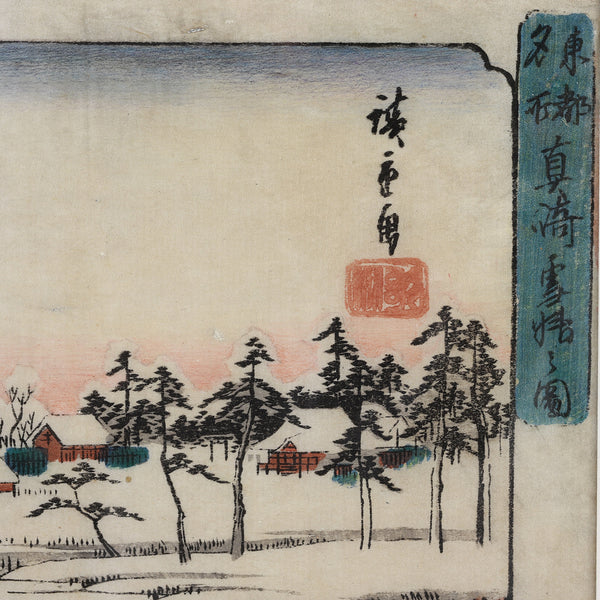 東都
名所
真崎雪晴之図
廣重画